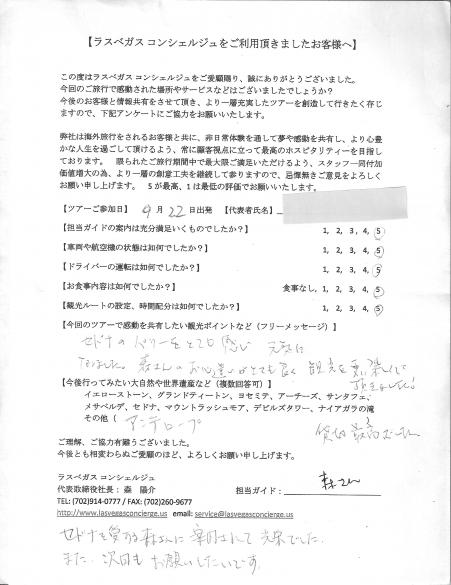 【ラスベガス コンシェルジュをご利用頂きましたお客様へ】
この度はラスベガス コンシェルジュをご愛顧賜り、誠にありがとうございました。
今回のご旅行で感動された場所やサービスなどはございましたでしょうか？
今後のお客様と情報共有をさせて頂き、より一層充実したツアーを創造して行きたく存じ
ますので、下記アンケートにご協力をお願いいたします。
弊社は海外旅行をされるお客様と共に、非日常体験を通して夢や感動を共有し、より心豊
かな人生を過ごして頂けるよう、常に顧客視点に立って最高のホスピタリティーを目指し
ております。 限られたご旅行期間中で最大限ご満足いただけるよう、スタッフ一同付加
価値増大の為、より一層の創意工夫を継続して参りますので、忌憚無きご意見をよろしく
お願い申し上げます。 5が最高、1は最低の評価でお願いいたします。
【ツアーご参加日】 9月22日出発 【代表者氏名】
【担当ガイドの案内は充分満足いくものでしたか？】 1, 2, 3, 4, 5
【車両や航空機の状態は如何でしたか？】 1, 2, 3, 4, 5
【ドライバーの運転は如何でしたか？】 1, 2, 3, 4, 5
【お食事内容は如何でしたか？】 食事なし, 1, 2, 3, 4, 5
【観光ルートの設定、時間配分は如何でしたか？】 1, 2, 3, 4, 5
【今回のツアーで感動を共有したい観光ポイントなど（フリーメッセージ）】
セドナのパワーをとても感じ 元気に
なりました。森さんのお心遣いがとても良く 観光を
頂きました!
【今後行ってみたい大自然や世界遺産など（複数回答可）】
イエローストーン、グランドティートン、ヨセミテ、アーチーズ、サンタフェ、
メサベルデ、セドナ、マウントラッシュモア、デビルズタワー、ナイアガラの滝
その他（ アンテロープ
ご理解、ご協力有難うございました。
今後とも相変わらぬご愛顧のほど、よろしくお願い申し上げます。
ラスベガス コンシェルジュ
代表取締役社長： 森 陽介 担当ガイド：
TEL: (702)914-0777 / FAX: (702)260-9677
http://www.lasvegasconcierge.us email: service@lasvegasconcierge.us
セドナを愛する森さんに案内されて光栄でした。
また、次回もお願いしたいです。